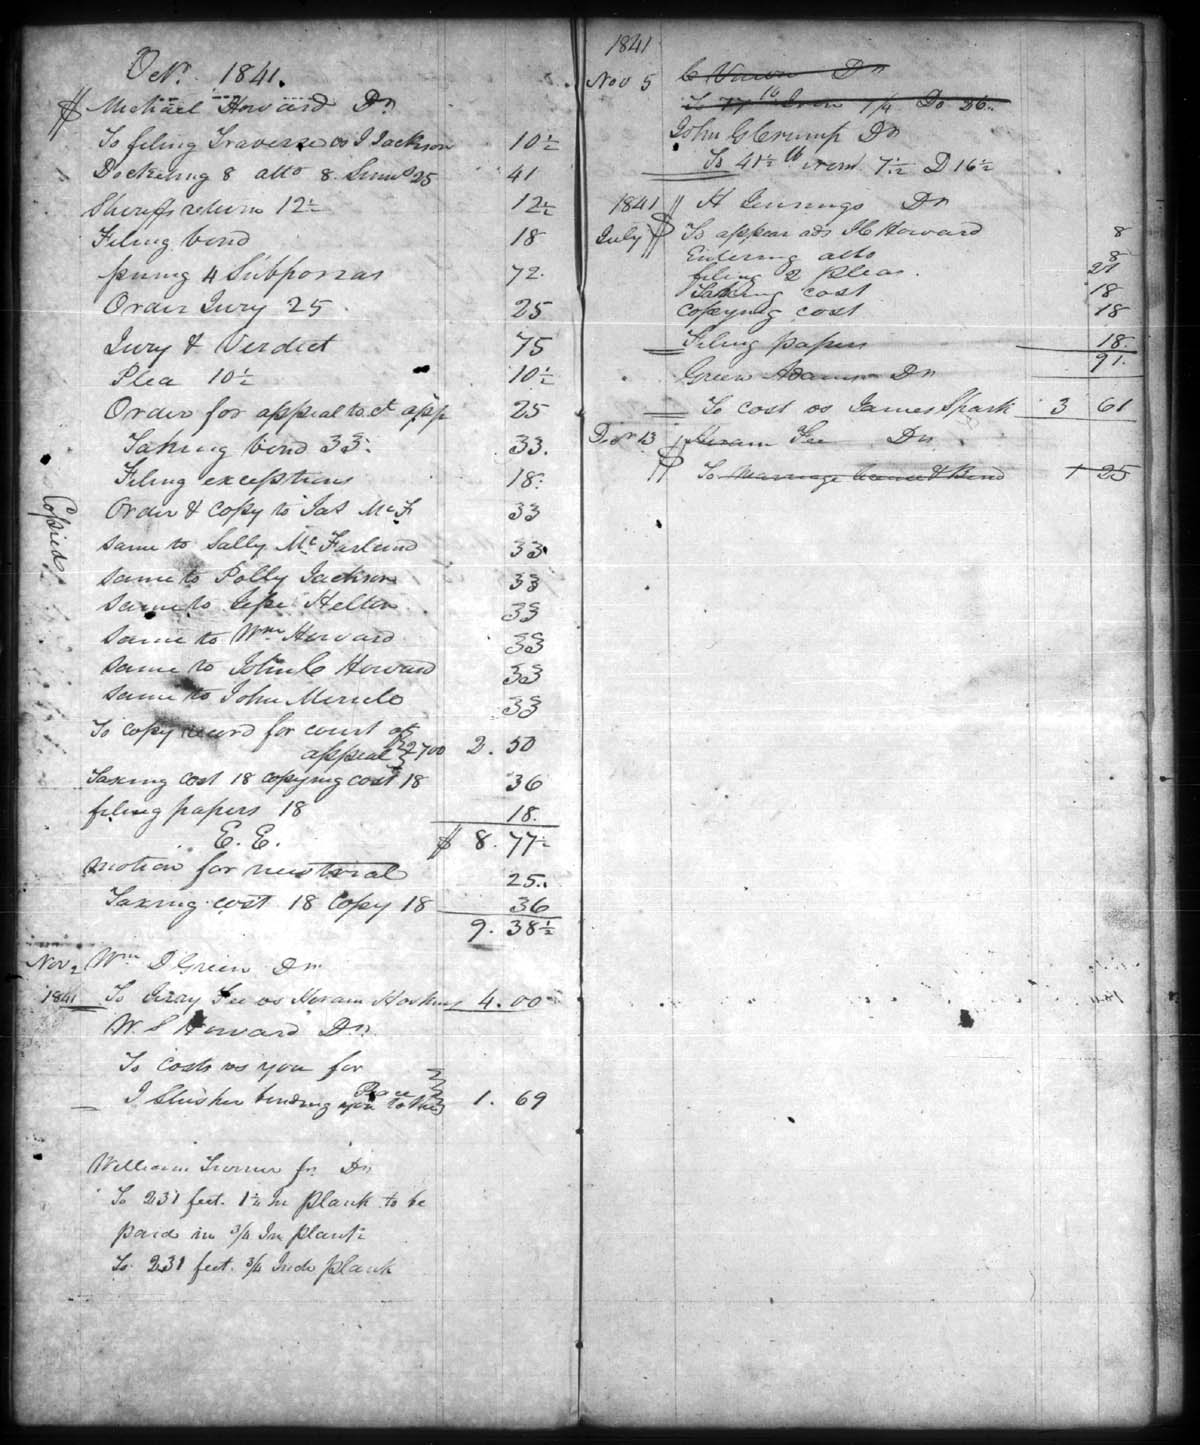 Octr 1841.
$ Michael Howard Dr
To filing Traverse vs J Jackson 10½
Docketing 8 atto 8 Sums 25 41
Sheriffs return 12½ 12½
Filing bond 18
issuing 4 Subpoenas 72
Order Jury 25 25
Jury & Verdict 75
Plea 10½ 10½
Order for appeal to ct app 25
Taking bond 33. 33.
Filing exceptions 18
Order & Copy to Jas McF 33
same to Sally McFarland 33
same to Polly Jackson 33
same to Helton 33
same to Wm Howard 33
same to John C Howard 33
same to John 33
Copied
To copy record for court of
appeal 2700 2.50
Taxing cost 18 copying cost 18 36
filing papers 18 18.
E. E. $ 8.77½
motion for new trial 25
Taxing cost 18 Copy 18 36
9.38½
Nov 2 Wm D Green Dr
1841 To Fee vs Hiram Hoskins 4.00
W. S Howard Dr
To costs vs you for
J Slusher binding you to the 1.69
William Turner jr Dr
To 231 feet. 1¼ In plank to be
paid in ¾ In plank
To 231 feet. ¾ Inch plank
1841
Nov 5 C Dr
To 17 lb Iron 1/4 Do
John G Crump Dr
To 41½ lb iron 7½ D 16½
1841 H Jennings Dr
July $ To appear ads H Howard 8
Entering atto 8
filing 2 Pleas 21
Taxing cost 18
copying cost 18
Filing papers 18
91.
Green Adams Dr
To cost vs James Spark 3 61
Decr 13 Hiram Fee Dr
$ To Marriage license & Bond 1 25